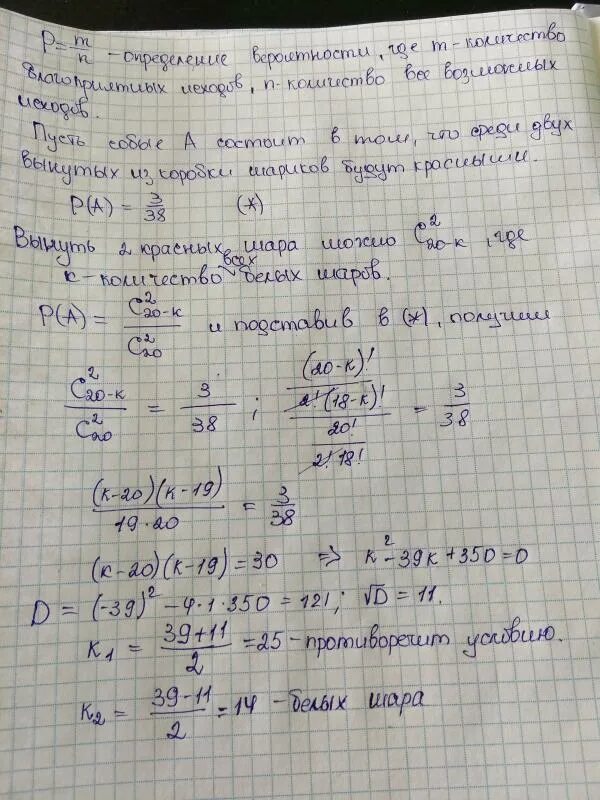 P = m/n - определение вероятности, где m - количество
благоприятных исходов, n - количество все возможных
исходов.
Пусть собые A состоит в том, что среди двух
вынутых из коробки шариков будут красными.
P(A) = 3/38 (*)
Вынуть 2 красных шара можно C²₂₀₋ₖ, где
k - количество всех белых шаров.
P(A) = C²₂₀₋ₖ / C²₂₀ и подставив в (*), получим
C²₂₀₋ₖ / C²₂₀ = 3/38 ; ((20-k)! / (2!(18-k)!)) / (20! / (2!18!)) = 3/38
(k-20)(k-19) / 19·20 = 3/38
(k-20)(k-19) = 30 => k² - 39k + 350 = 0
D = (-39)² - 4·1·350 = 121; √D = 11.
k₁ = (39+11)/2 = 25 - противоречит условию.
k₂ = (39-11)/2 = 14 - белых шара